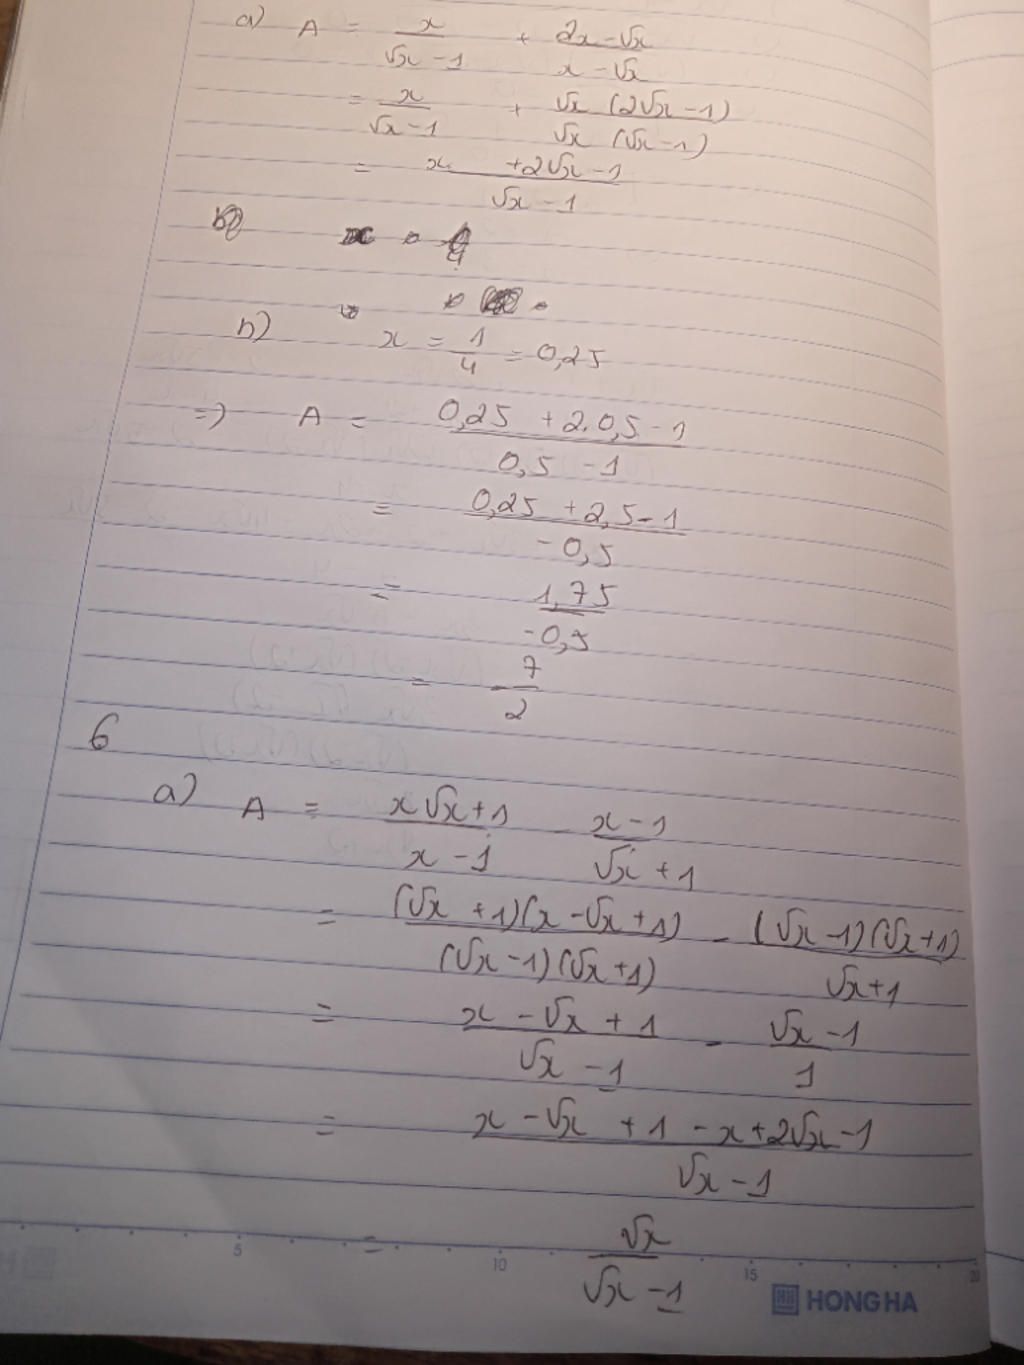 a) A = x/(√x - 1) + (2x - √x)/(x - √x)
= x/(√x - 1) + √x (2√x - 1)/(√x (√x - 1))
= (x + 2√x - 1)/(√x - 1)
b) x = 1/4 = 0,25
=) A = (0,25 + 2.0,5 - 1)/(0,5 - 1)
= (0,25 + 2,5 - 1)/(-0,5)
= 1,75/(-0,5)
= 7/2
6
a) A = (x√x + 1)/(x - 1) - (x - 1)/(√x + 1)
= (√x + 1)(x - √x + 1)/((√x - 1)(√x + 1)) - (√x - 1)(√x + 1)/(√x + 1)
= (x - √x + 1)/(√x - 1) - (√x - 1)/1
= (x - √x + 1 - x + 2√x - 1)/(√x - 1)
= √x/(√x - 1)
5 10 15 20
HONG HA